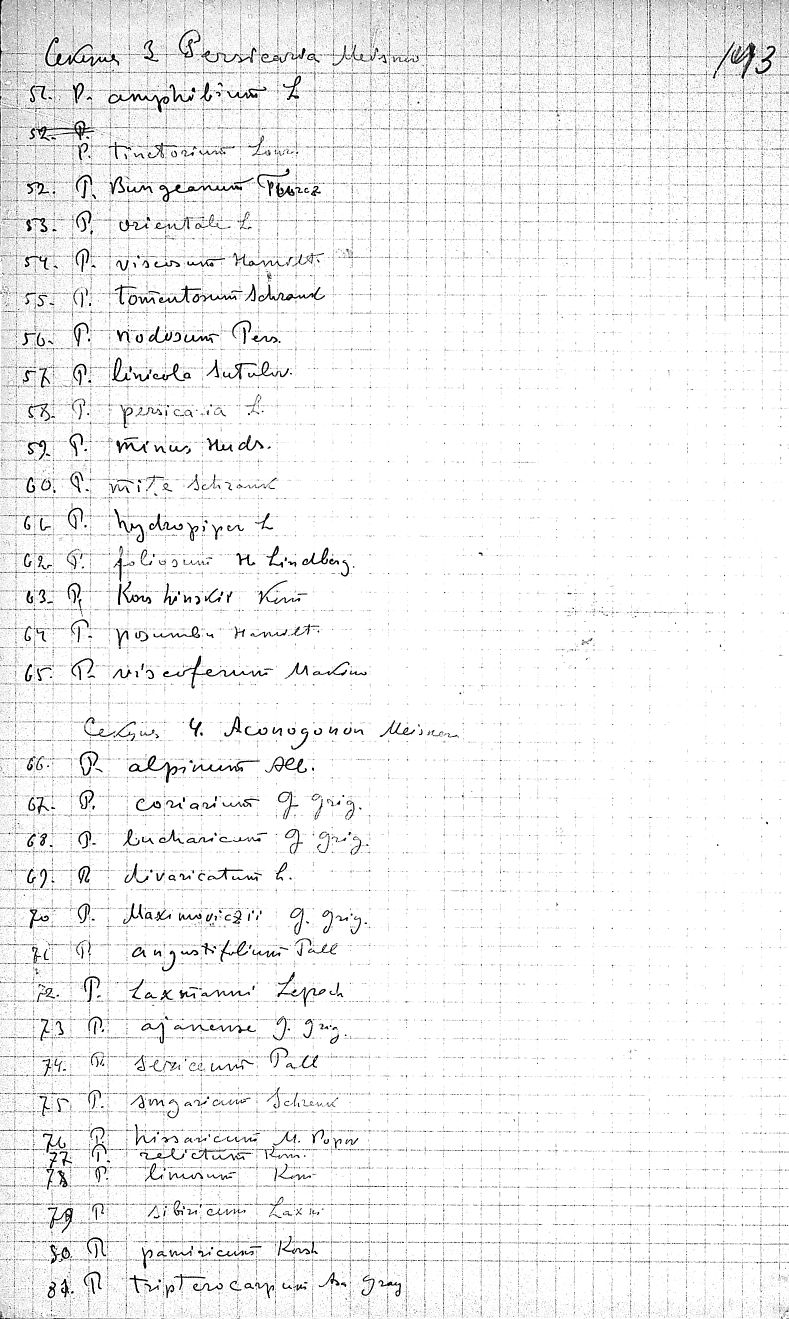 Секция 3 Persicaria Meisner
193
51. P. amphibium L
52. P.
P. tinctorium Lour.
52. P. Bungeanum Turcz
53. P. orientale L
54. P. viscosum Hamilt.
55. P. tomentosum Schrank
56. P. nodosum Pers.
57. P. linicola Sutulov.
58. P. persicaria L.
59. P. minus Huds.
60. P. mite Schrank
61. P. hydropiper L
62. P. foliosum H. Lindberg.
63. P. Korshinskii Kom
64 P. posumbu Hamilt.
65. P. viscoferum Makino
Секция 4. Aconogonon Meisner
66. P. alpinum All.
67. P. coriarium G grig.
68. P. bucharicum G grig.
69. P. divaricatum L.
70 P. Maximowiczii G. grig.
71 P. angustifolium Pall
72. P. Laxmanni Lepech
73 P. ajanense G. grig.
74. P. sericeum Pall
75 P. songaricum Schrenk
76 P. hissaricum M. Popov
77 P. relictum Kom.
78 P. limosum Kom
79 P sibiricum Laxm
80 P. pamiricum Korsh
81. P. tripterocarpum Asa Gray